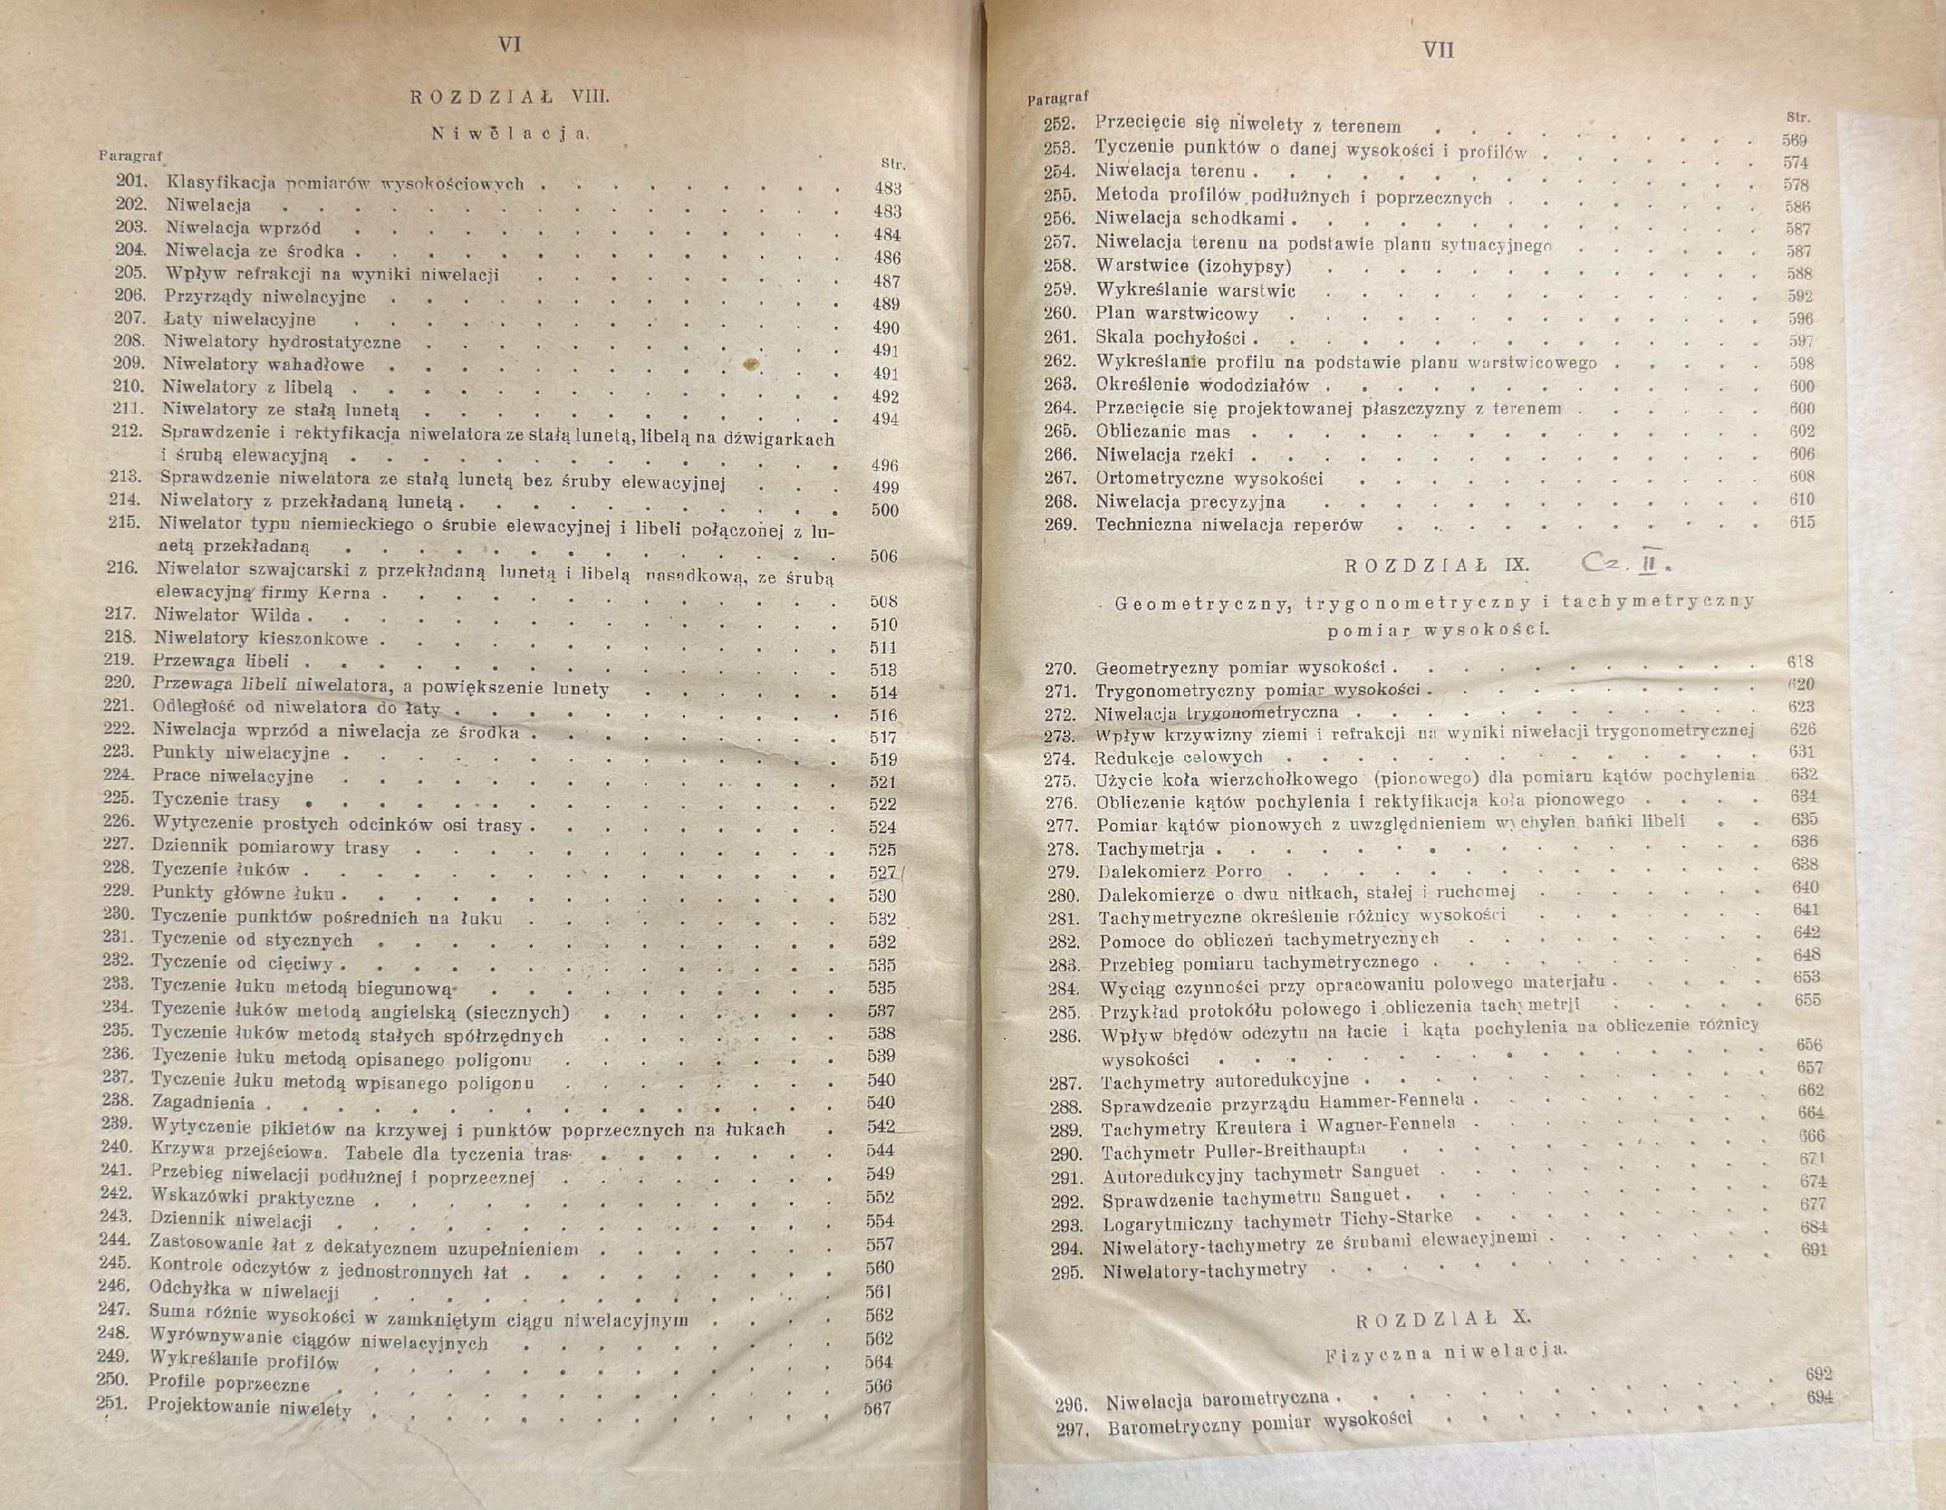 VI
ROZDZIAŁ VIII.
Niwelacja.
Paragraf Str.
201. Klasyfikacja pomiarów wysokościowych . . . . . . . . . 483
202. Niwelacja . . . . . . . . . 483
203. Niwelacja wprzód . . . . . . . . . 484
204. Niwelacja ze środka . . . . . . . . . 486
205. Wpływ refrakcji na wyniki niwelacji . . . . . . . . . 487
206. Przyrządy niwelacyjne . . . . . . . . . 489
207. Łaty niwelacyjne . . . . . . . . . 490
208. Niwelatory hydrostatyczne . . . . . . . . . 491
209. Niwelatory wahadłowe . . . . . . . . . 491
210. Niwelatory z libelą . . . . . . . . . 492
211. Niwelatory ze stałą lunetą . . . . . . . . . 494
212. Sprawdzenie i rektyfikacja niwelatora ze stałą lunetą, libelą na dźwigarkach
i śrubą elewacyjną . . . . . . . . . 496
213. Sprawdzenie niwelatora ze stałą lunetą bez śruby elewacyjnej . . . 499
214. Niwelatory z przekładaną lunetą . . . . . . . . . 500
215. Niwelator typu niemieckiego o śrubie elewacyjnej i libeli połączonej z lu-
netą przekładaną . . . . . . . . . 506
216. Niwelator szwajcarski z przekładaną lunetą i libelą nasadkową, ze śrubą
elewacyjną firmy Kerna . . . . . . . . . 508
217. Niwelator Wilda . . . . . . . . . 510
218. Niwelatory kieszonkowe . . . . . . . . . 511
219. Przewaga libeli . . . . . . . . . 513
220. Przewaga libeli niwelatora, a powiększenie lunety . . . . . . 514
221. Odległość od niwelatora do łaty . . . . . . . . . 516
222. Niwelacja wprzód a niwelacja ze środka . . . . . . . . . 517
223. Punkty niwelacyjne . . . . . . . . . 519
224. Prace niwelacyjne . . . . . . . . . 521
225. Tyczenie trasy . . . . . . . . . 522
226. Wytyczenie prostych odcinków osi trasy . . . . . . . . . 524
227. Dziennik pomiarowy trasy . . . . . . . . . 525
228. Tyczenie łuków . . . . . . . . . 527
229. Punkty główne łuku . . . . . . . . . 530
230. Tyczenie punktów pośrednich na łuku . . . . . . . . . 532
231. Tyczenie od stycznych . . . . . . . . . 532
232. Tyczenie od cięciwy . . . . . . . . . 535
233. Tyczenie łuku metodą biegunową . . . . . . . . . 535
234. Tyczenie łuków metodą angielską (siecznych) . . . . . . . 537
235. Tyczenie łuków metodą stałych spółrzędnych . . . . . . . 538
236. Tyczenie łuku metodą opisanego poligonu . . . . . . . . 539
237. Tyczenie łuku metodą wpisanego poligonu . . . . . . . . 540
238. Zagadnienia . . . . . . . . . 540
239. Wytyczenie pikietów na krzywej i punktów poprzecznych na łukach . 542
240. Krzywa przejściowa. Tabele dla tyczenia tras . . . . . . . 544
241. Przebieg niwelacji podłużnej i poprzecznej . . . . . . . . 549
242. Wskazówki praktyczne . . . . . . . . . 552
243. Dziennik niwelacji . . . . . . . . . 554
244. Zastosowanie łat z dekatycznem uzupełnieniem . . . . . . . 557
245. Kontrole odczytów z jednostronnych łat . . . . . . . . . 560
246. Odchyłka w niwelacji . . . . . . . . . 561
247. Suma różnic wysokości w zamkniętym ciągu niwelacyjnym . . . . 562
248. Wyrównywanie ciągów niwelacyjnych . . . . . . . . . 562
249. Wykreślanie profilów . . . . . . . . . 564
250. Profile poprzeczne . . . . . . . . . 566
251. Projektowanie niwelety . . . . . . . . . 567
VII
Paragraf Str.
252. Przecięcie się niwelety z terenem . . . . . . . . . 569
253. Tyczenie punktów o danej wysokości i profilów . . . . . . . 574
254. Niwelacja terenu . . . . . . . . . 578
255. Metoda profilów podłużnych i poprzecznych . . . . . . . . 586
256. Niwelacja schodkami . . . . . . . . . 587
257. Niwelacja terenu na podstawie planu sytuacyjnego . . . . . . 587
258. Warstwice (izohypsy) . . . . . . . . . 588
259. Wykreślanie warstwic . . . . . . . . . 592
260. Plan warstwicowy . . . . . . . . . 596
261. Skala pochyłości . . . . . . . . . 597
262. Wykreślanie profilu na podstawie planu warstwicowego . . . . . 598
263. Określenie wododziałów . . . . . . . . . 600
264. Przecięcie się projektowanej płaszczyzny z terenem . . . . . 600
265. Obliczanie mas . . . . . . . . . 602
266. Niwelacja rzeki . . . . . . . . . 606
267. Ortometryczne wysokości . . . . . . . . . 608
268. Niwelacja precyzyjna . . . . . . . . . 610
269. Techniczna niwelacja reperów . . . . . . . . . 615
ROZDZIAŁ IX. Cz. II.
Geometryczny, trygonometryczny i tachymetryczny
pomiar wysokości.
270. Geometryczny pomiar wysokości . . . . . . . . . 618
271. Trygonometryczny pomiar wysokości . . . . . . . . . 620
272. Niwelacja trygonometryczna . . . . . . . . . 623
273. Wpływ krzywizny ziemi i refrakcji na wyniki niwelacji trygonometrycznej 626
274. Redukcje celowych . . . . . . . . . 631
275. Użycie koła wierzchołkowego (pionowego) dla pomiaru kątów pochylenia . 632
276. Obliczenie kątów pochylenia i rektyfikacja koła pionowego . . . . 634
277. Pomiar kątów pionowych z uwzględnieniem wychyleń bańki libeli . . 635
278. Tachymetrja . . . . . . . . . 636
279. Dalekomierz Porro . . . . . . . . . 638
280. Dalekomierze o dwu nitkach, stałej i ruchomej . . . . . . . 640
281. Tachymetryczne określenie różnicy wysokości . . . . . . . 641
282. Pomoce do obliczeń tachymetrycznych . . . . . . . . 642
283. Przebieg pomiaru tachymetrycznego . . . . . . . . . 648
284. Wyciąg czynności przy opracowaniu polowego materjału . . . . . 653
285. Przykład protokółu polowego i obliczenia tachymetrji . . . . . 655
286. Wpływ błędów odczytu na łacie i kąta pochylenia na obliczenie różnicy
wysokości . . . . . . . . . 656
287. Tachymetry autoredukcyjne . . . . . . . . . 657
288. Sprawdzenie przyrządu Hammer-Fennela . . . . . . . . 662
289. Tachymetry Kreutera i Wagner-Fennela . . . . . . . . 664
290. Tachymetr Puller-Breithaupta . . . . . . . . . 666
291. Autoredukcyjny tachymetr Sanguet . . . . . . . . . 671
292. Sprawdzenie tachymetru Sanguet . . . . . . . . . 674
293. Logarytmiczny tachymetr Tichy-Starke . . . . . . . . 677
294. Niwelatory-tachymetry ze śrubami elewacyjnemi . . . . . . 684
295. Niwelatory-tachymetry . . . . . . . . . 691
ROZDZIAŁ X.
Fizyczna niwelacja.
296. Niwelacja barometryczna . . . . . . . . . 692
297. Barometryczny pomiar wysokości . . . . . . . . . 694